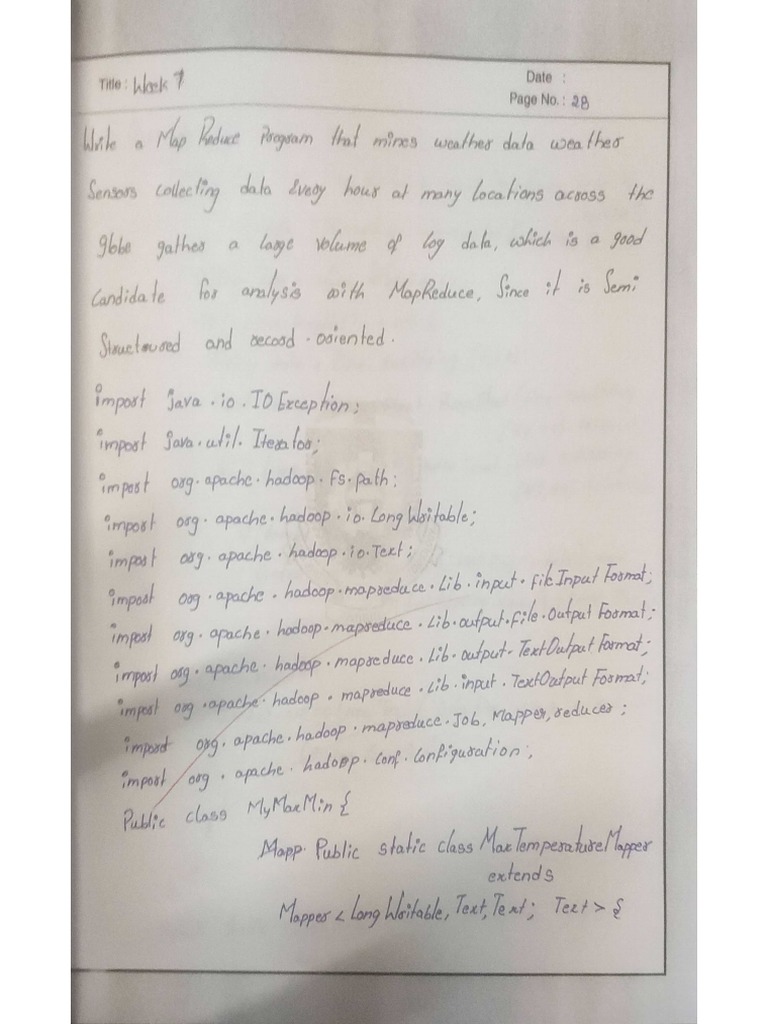 Title : Week 7
Date :
Page No. : 28
Write a Map Reduce Program that mines weather data weather
Sensors collecting data Every hour at many locations across the
globe gather a large volume of log data, which is a good
Candidate for analysis with MapReduce, Since it is Semi
Structured and record - oriented.
import java . io . IO Exception ;
import java . util . Iterator ;
import org . apache . hadoop . fs . path ;
import org . apache . hadoop . io . Long Writable ;
import org . apache . hadoop . io . Text ;
import org . apache . hadoop . mapreduce . Lib . input . file Input Format ;
import org . apache . hadoop . mapreduce . Lib . output . file . Output Format ;
import org . apache . hadoop . mapreduce . Lib . output - Text Output Format ;
import org . apache . hadoop . mapreduce . Lib . input . Text Output Format ;
import org . apache . hadoop . mapreduce . Job, Mapper, reducer ;
import org . apache . hadoop . conf . Configuration ;
Public class MyMaxMin {
Mapp . Public static class Max Temperature Mapper
extends
Mapper < Long Writable, Text, Text ; Text > {